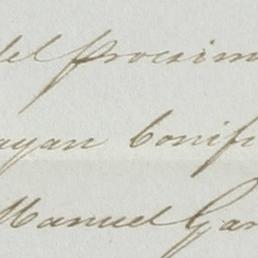 del procsim
ayan bonifi
Manuel Gar